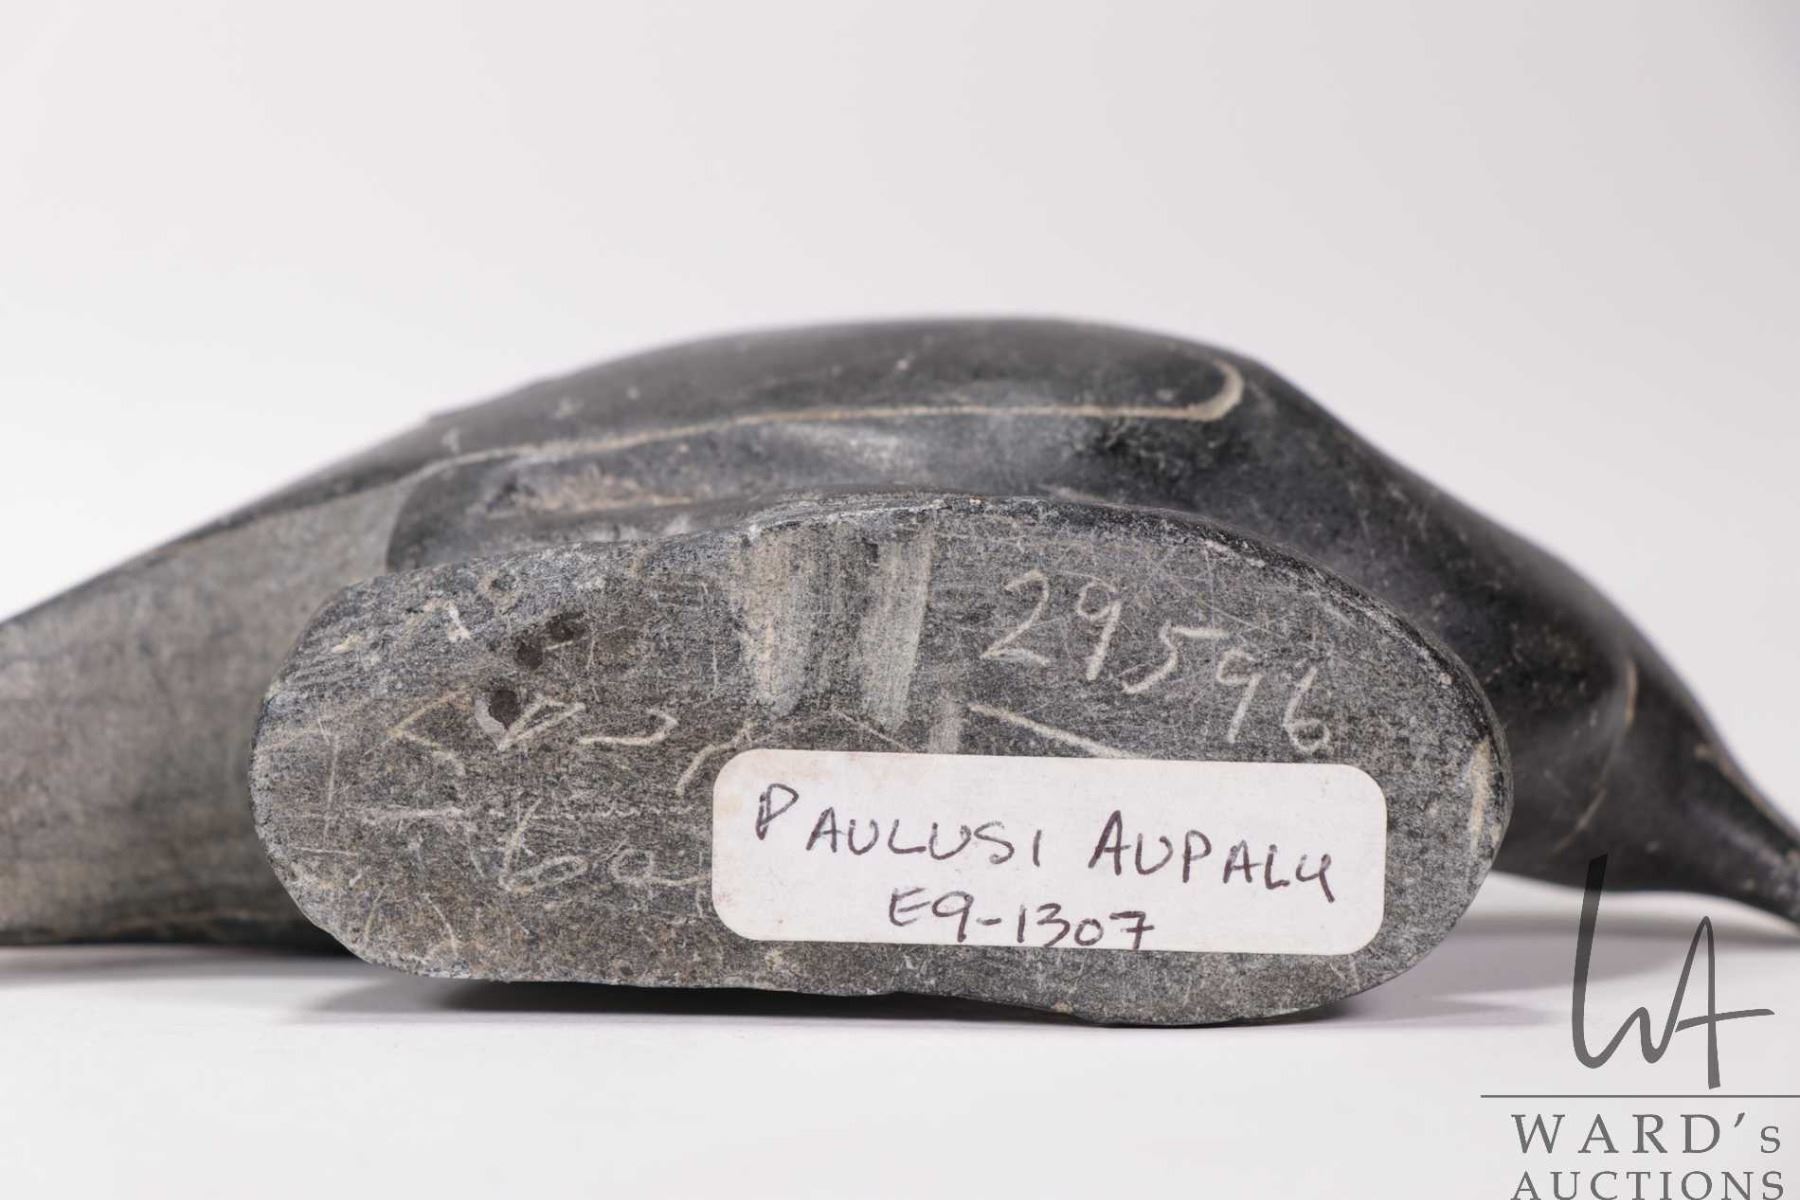 29596
PAULUSI AUPALU
E9-1307
WARD's
AUCTIONS